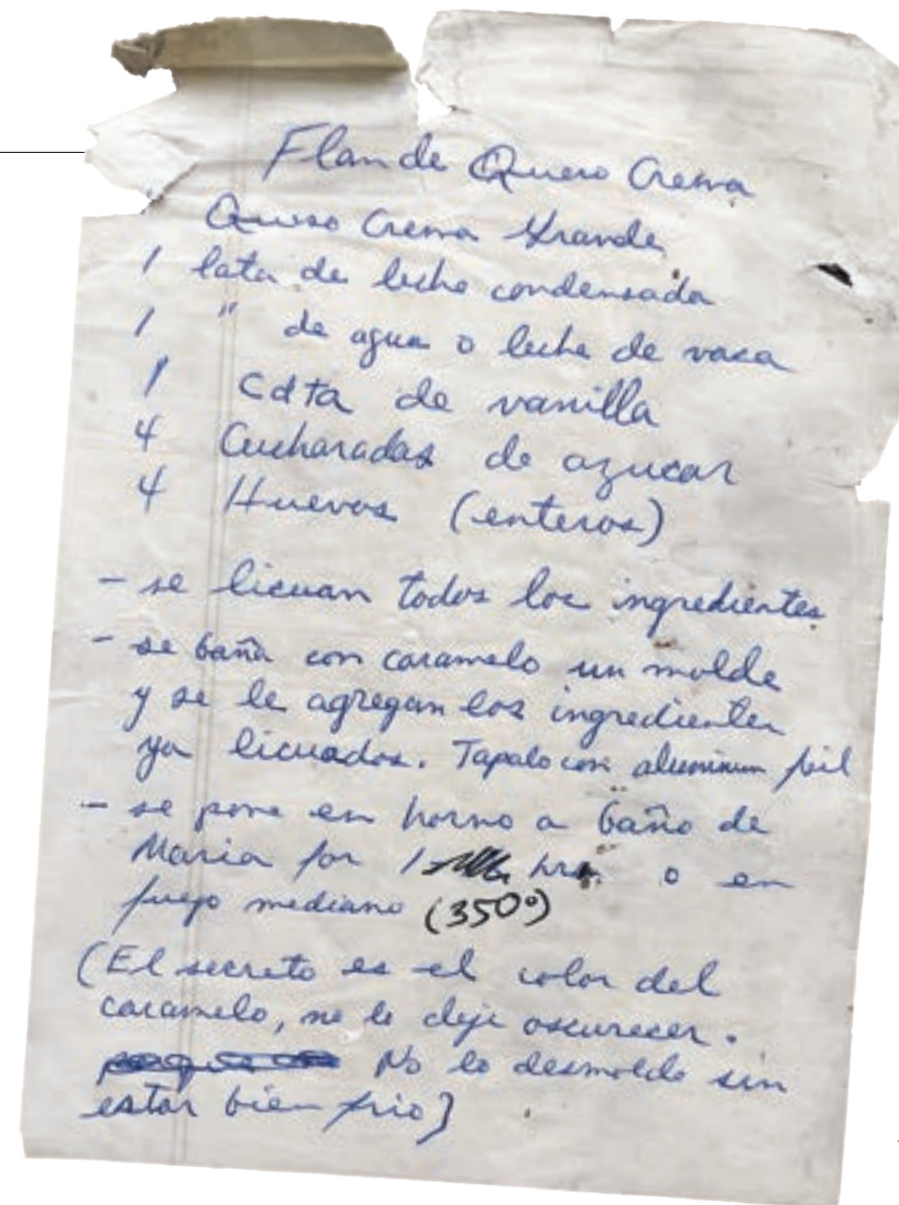 Flan de Queso Crema
Queso Crema Grande
1 lata de leche condensada
1 " de agua o leche de vaca
1 Cdta de vanilla
4 Cucharadas de azucar
4 Huevos (enteros)
- se licuan todos los ingredientes
- se baña con caramelo un molde
y se le agregan los ingredientes
ya licuados. Tapalo con aluminum foil
- se pone en horno a baño de
Maria por 1 hra o en
fuego mediano (350°)
(El secreto es el color del
caramelo, no le deje oscurecer.
No lo desmolde sin
estar bien frio)